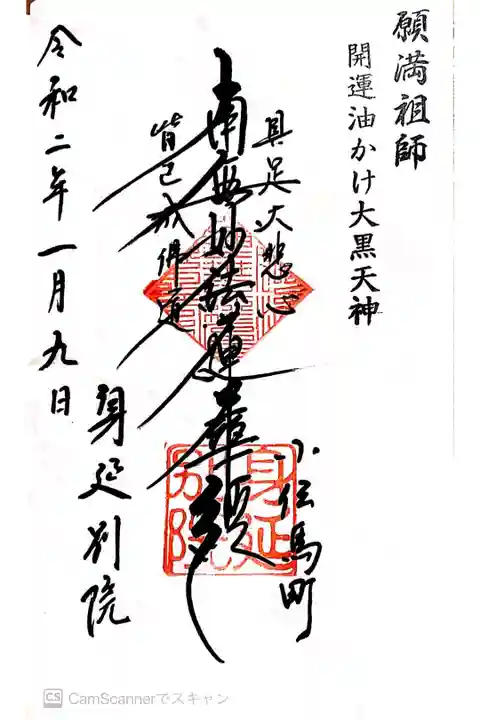 願満祖師
開運油かけ大黒天神
具足大悲心
南無妙法蓮華経
皆已成佛道
小伝馬町
身延別院
令和二年一月九日
身延別院
CamScannerでスキャン